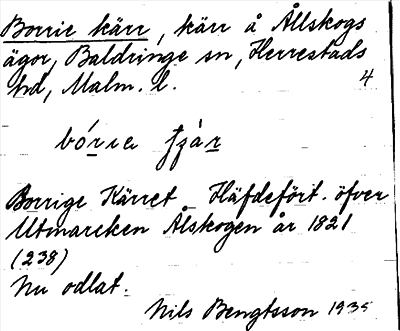 Borrie kärr, kärr å Ållskogs
ägor, Baldringe sn, Herrestads
hd, Malm. l. 4
Borrige Kärret Häfdeförit. öfver
Utmarcken Ålskogen år 1821
(238)
Nu odlat.
Nils Bengtsson 1935